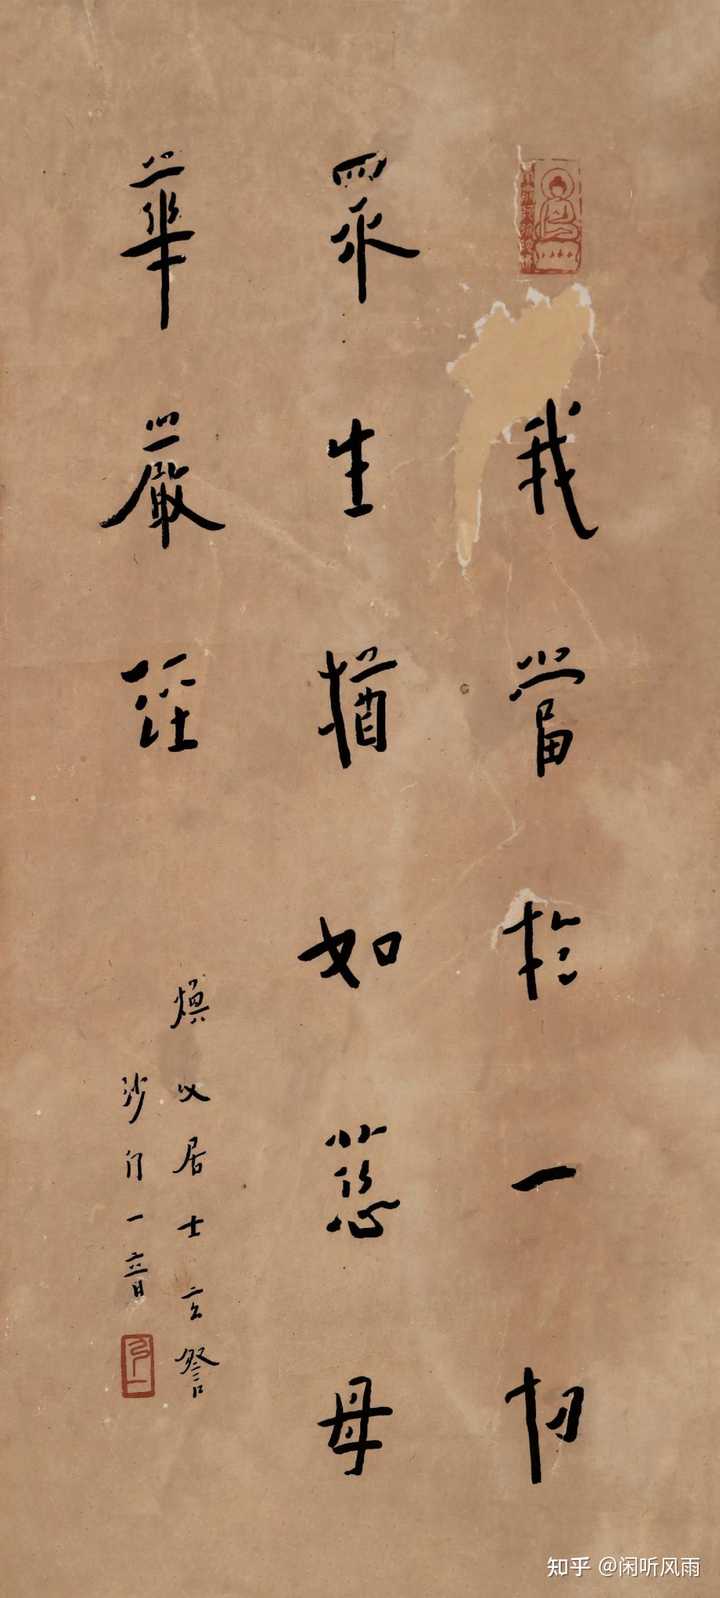 我當於一切
眾生猶如慈母
華嚴經
煥文居士玄詧
沙門一音
知乎 @闲听风雨